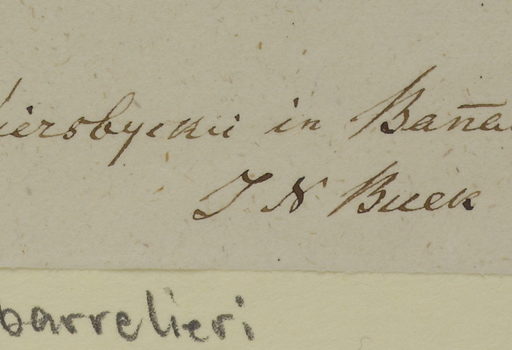 iersbyckii in Bana
J N Buek
barrelieri